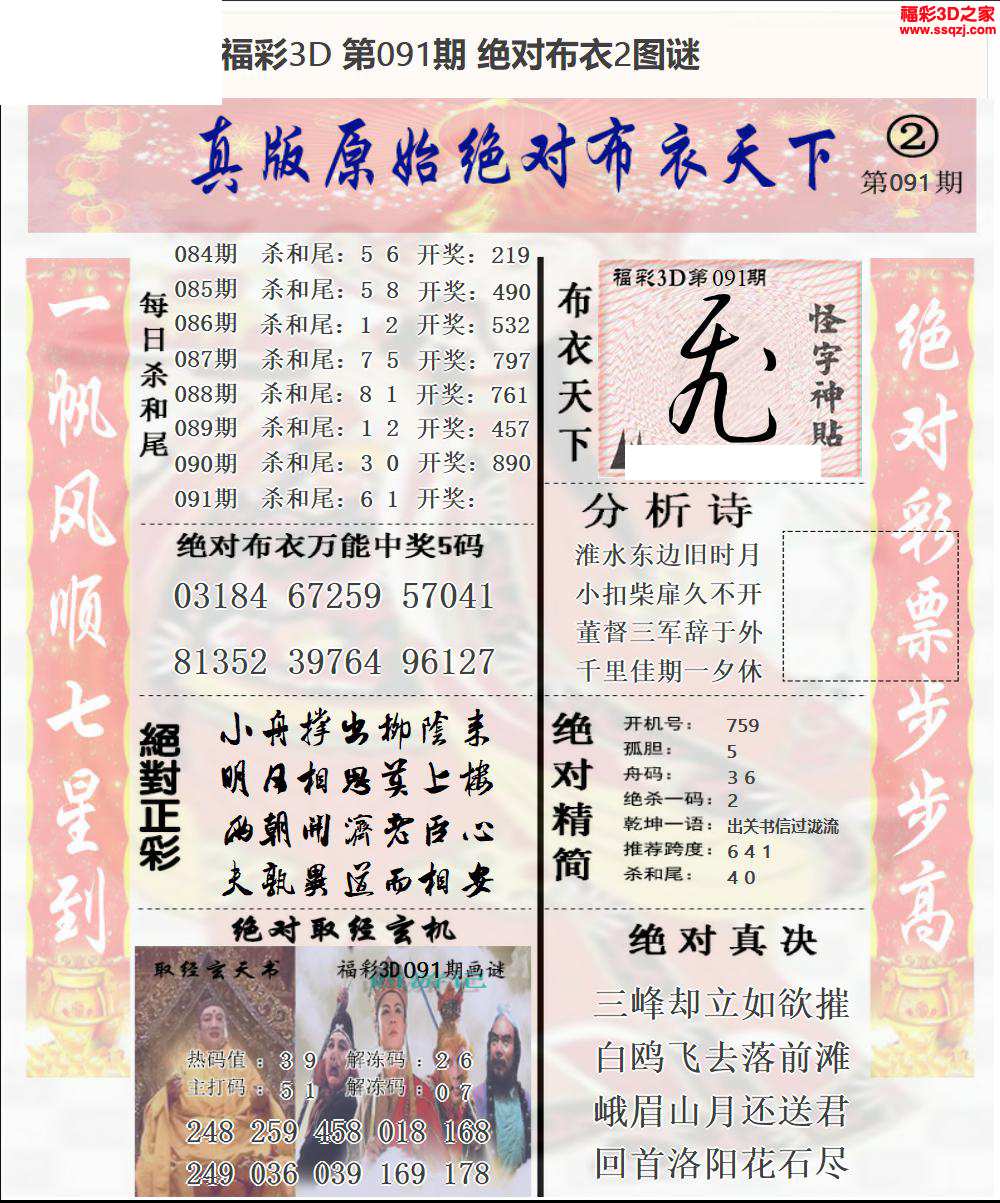 福彩3D之家
www.ssqzj.com
福彩3D 第091期 绝对布衣2图谜
真版原始绝对布衣天下
②
第091期
一帆风顺七星到
每日杀和尾
084期 杀和尾：5 6 开奖：219
085期 杀和尾：5 8 开奖：490
086期 杀和尾：1 2 开奖：532
087期 杀和尾：7 5 开奖：797
088期 杀和尾：8 1 开奖：761
089期 杀和尾：1 2 开奖：457
090期 杀和尾：3 0 开奖：890
091期 杀和尾：6 1 开奖：
绝对布衣万能中奖5码
03184 67259 57041
81352 39764 96127
絕對正彩
小舟撑出柳陰来
明月相思莫上樓
两朝開濟老臣心
夫孰異道而相安
绝对取经玄机
取经玄天书
福彩3D091期画谜
热码值：3 9 解冻码：2 6
主打码：5 1 解冻码：0 7
248 259 458 018 168
249 036 039 169 178
布衣天下
福彩3D第091期
怪字神貼
分析诗
淮水东边旧时月
小扣柴扉久不开
董督三军辞于外
千里佳期一夕休
绝对精简
开机号：759
孤胆：5
舟码：3 6
绝杀一码：2
乾坤一语：出关书信过泷流
推荐跨度：6 4 1
杀和尾：4 0
绝对真决
三峰却立如欲摧
白鸥飞去落前滩
峨眉山月还送君
回首洛阳花石尽
绝对彩票步步高